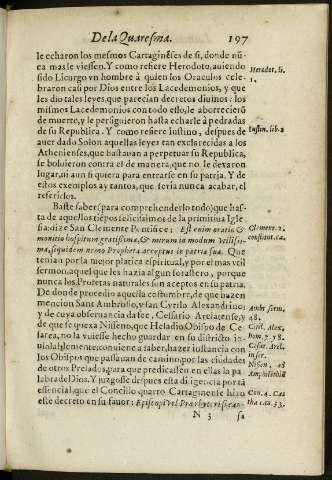 De la Quaresma. 197
le echaron los mesmos Cartaginẽses de si, donde nũ-
ca mas le viessen. Y como refiere Herodoto, auiendo
sido Licurgo vn hombre à quien los Oraculos cele-
braron casi por Dios entre los Lacedemonios, y que
les dio tales leyes, que parecian decretos diuinos: los
mismos Lacedemonios con todo ello, le aborreciẽrõ
de muerte, y le perseguian hasta echarle à pedradas
de su Republica. Y como refiere Iustino, despues de
auer dado Solon aquellas leyes tan esclarecidas a los
Athenienses, que bastauan a perpetuar su Republica,
se boluieron contra el de manera, que no le dexaron
lugar, ni aun si quiera para entrarse en su patria. Y de
estos exemplos ay tantos, que seria nunca acabar, el
referirlos.
Herodot. li.
1.
Iustin. lib. 2
Baste saber (para comprehenderlo todo) que has-
ta de aquellos tiẽpos felicissimos de la primitiua Igle
sia: dize San Clemente Pontifice; Est enim oratio &
monitio hospitum gratissima, & mirum in modum vtilissi-
ma, siquidem nemo Propheta acceptus in patria sua. Que
tenian por la mejor platica espiritual, y por el mas vtil
sermon, aquel que les hazia algun forastero, porque
nunca los Profetas naturales son aceptos en su patria.
De donde procedio aquella costumbre, de que hazen
mencion Sant Ambrosio, y san Cyrilo Alexandrino:
y de cuya obseruancia da fee, Cessario Arelatense, y
de que se quexa Nisseno, que Heladio Obispo de Ce
sarea, no la vuiesse hecho guardar en su districto in
uiolablemente: conuiene a saber, hazer instancia con
los Obispos que passauan de camino, por las ciudades
de otros Prelados, para que predicassen en ellas la pa
labra de Dios. Y juzgosse despues esta diligencia por tã
essencial, que el Concilio quarto Cartaginense hizo
este decreto en su fauor: Episcopi vel Præbyteri si
Clement. 2.
constant. ca.
Ambr. serm.
28.
Ciril. Alex.
hom. 7. 78.
Cesar. Arel.
Nissen.
Amphilochiũ
Con. 4. Car
tha can. 33.
N 3 sa